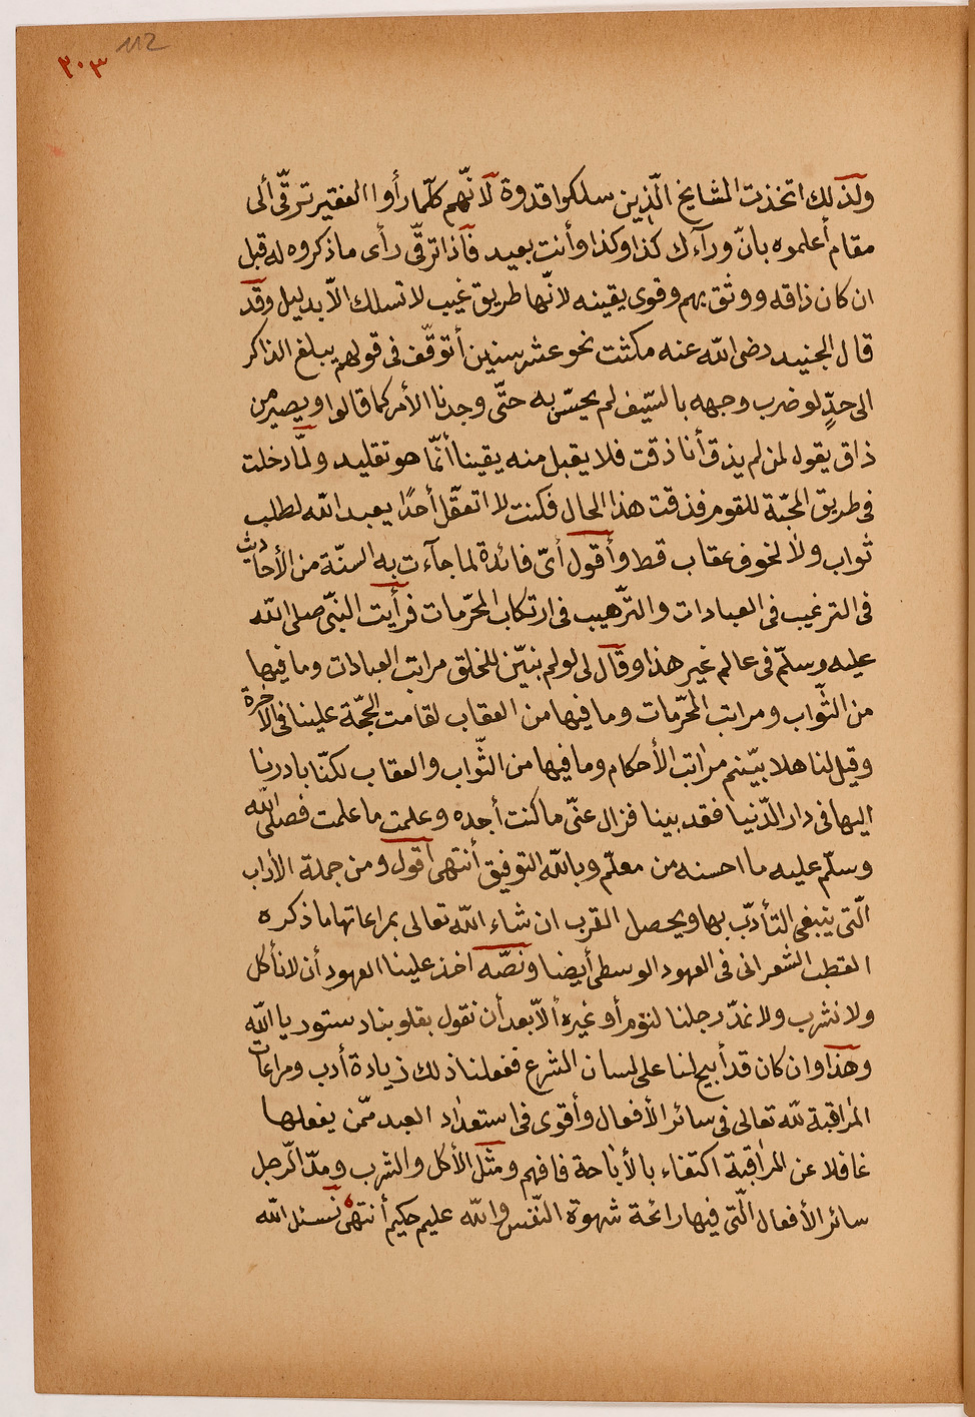 112
٢٠٣
ولذلك اتخذت المشايخ الّذين سلكوا قدوة لانّهم كلّما رأوا الفقير ترقّى ألى
مقام أعلموه بانّ ورآءك كذا وكذا وأنت بعيد فاذا ترقّى رأى ما ذكروه له قبل
ان كان ذاقه ووثق بهم وقوى يقينه لانّها طريق غيب لا تسلك الاّ بدليل وقد
قال الجنيد رضى اللّه عنه مكثت نحو عشر سنين أتوقّف فى قولهم يبلغ الذاكر
الى حدٍّ لو ضرب وجهه بالسّيف لم يحسّ به حتّى وجدنا الأمر كما قالوا ويصير من
ذاق يقول لمن لم يذق أنا ذقت فلا يقبل منه يقينا أنّما هو تقليد ولمّا دخلت
فى طريق المحبّة للقوم فذقت هذا الحال فكنت لا اتعقّل أحدًا يعبد اللّه لطلب
ثواب ولا لخوف عقاب قط وأقول أىّ فائدة لما جآءت به السنّة من الأحاديث
فى الترغيب فى العبادات والتّرهيب فى ارتكاب المحرّمات فرأيت النبّى صلى اللّه
عليه وسلّم فى عالم غير هذا وقال لى لو لم نبيّن للخلق مراتب العبادات وما فيها
من الثّواب ومراتب المحرّمات وما فيها من العقاب لقامت الحجّة علينا فى الآخرة
وقيل لنا هلا بيّنتم مراتب الأحكام وما فيها من الثّواب والعقاب لكنّا بادرنا
اليها فى دار الدّنيا فقد بينا فزال عنّى ما كنت أجده وعلمت ما علمت فصلى اللّه
وسلّم عليه ما احسنه من معلّم وباللّه التوفيق أنتهى اقول ومن جملة الأداب
الّتى ينبغى التأدّب بها ويحصل القرب ان شاء اللّه تعالى بمراعاتها ما ذكره
القطب الشعرانى فى العهود الوسطى أيضا ونصّه اخذ علينا العهود أن لا نأكل
ولا نشرب ولا نمدّ رجلنا لنوم أو غيره ألاّ بعد أن نقول بقلوبنا دستور يا اللّه
وهذا وان كان قد أبيح لنا على لسان الشرع ففعلنا ذلك زيادة أدب ومراعات
المراقبة للّه تعالى فى سائر الأفعال وأقوى فى استعداد العبد ممّن يفعلها
غافلا عن المراقبة اكتفاء بالأباحة فافهم ومثل الأكل والشرب ومدّ الرّجل
سائر الأفعال الّتى فيها رائحة شهوة النّفس واللّه عليم حكيم أنتهى نسئل اللّه